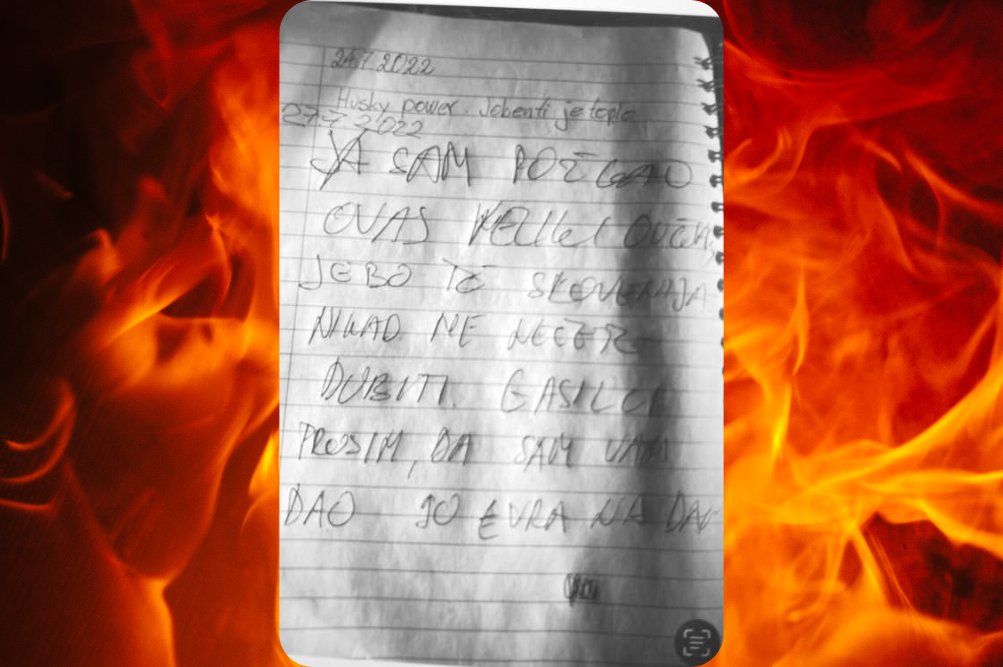 24.7.2022
Husky power. Jebenti je toplo
27.7.2022
JA SAM POŽGAO
OVAS VELIKI
JEBO TE SLOVENIJA
NIKAD ME NEČEŠ
DUBITI. GASILCI
PROSIM, DA SAM VAM
DAO 10 EVRA NA DAN